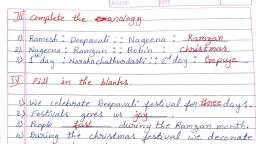 III Complete the analogy.
1) Ramesh : Deepavali :: Nageena : Ramzan
2) Nageena : Ramzan :: Robin : christmas
3) 1st day : Narahachathurdashi :: 2nd day : Gopuje
IV Fill in the blanks.
1) We celebrate Deepavali festival for three days.
2) Festivals gives us joy.
3) People fast during the Ramzan month.
4) During the christmas festival we decorate